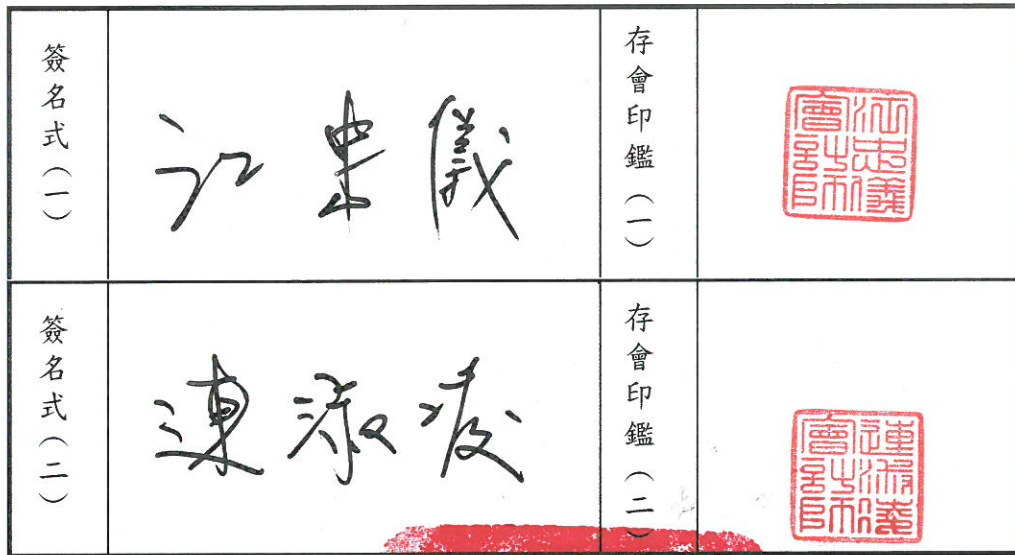 簽名式（一）
江忠儀
存會印鑑（一）
江忠儀會計師
簽名式（二）
連淑凌
存會印鑑（二）
連淑凌會計師